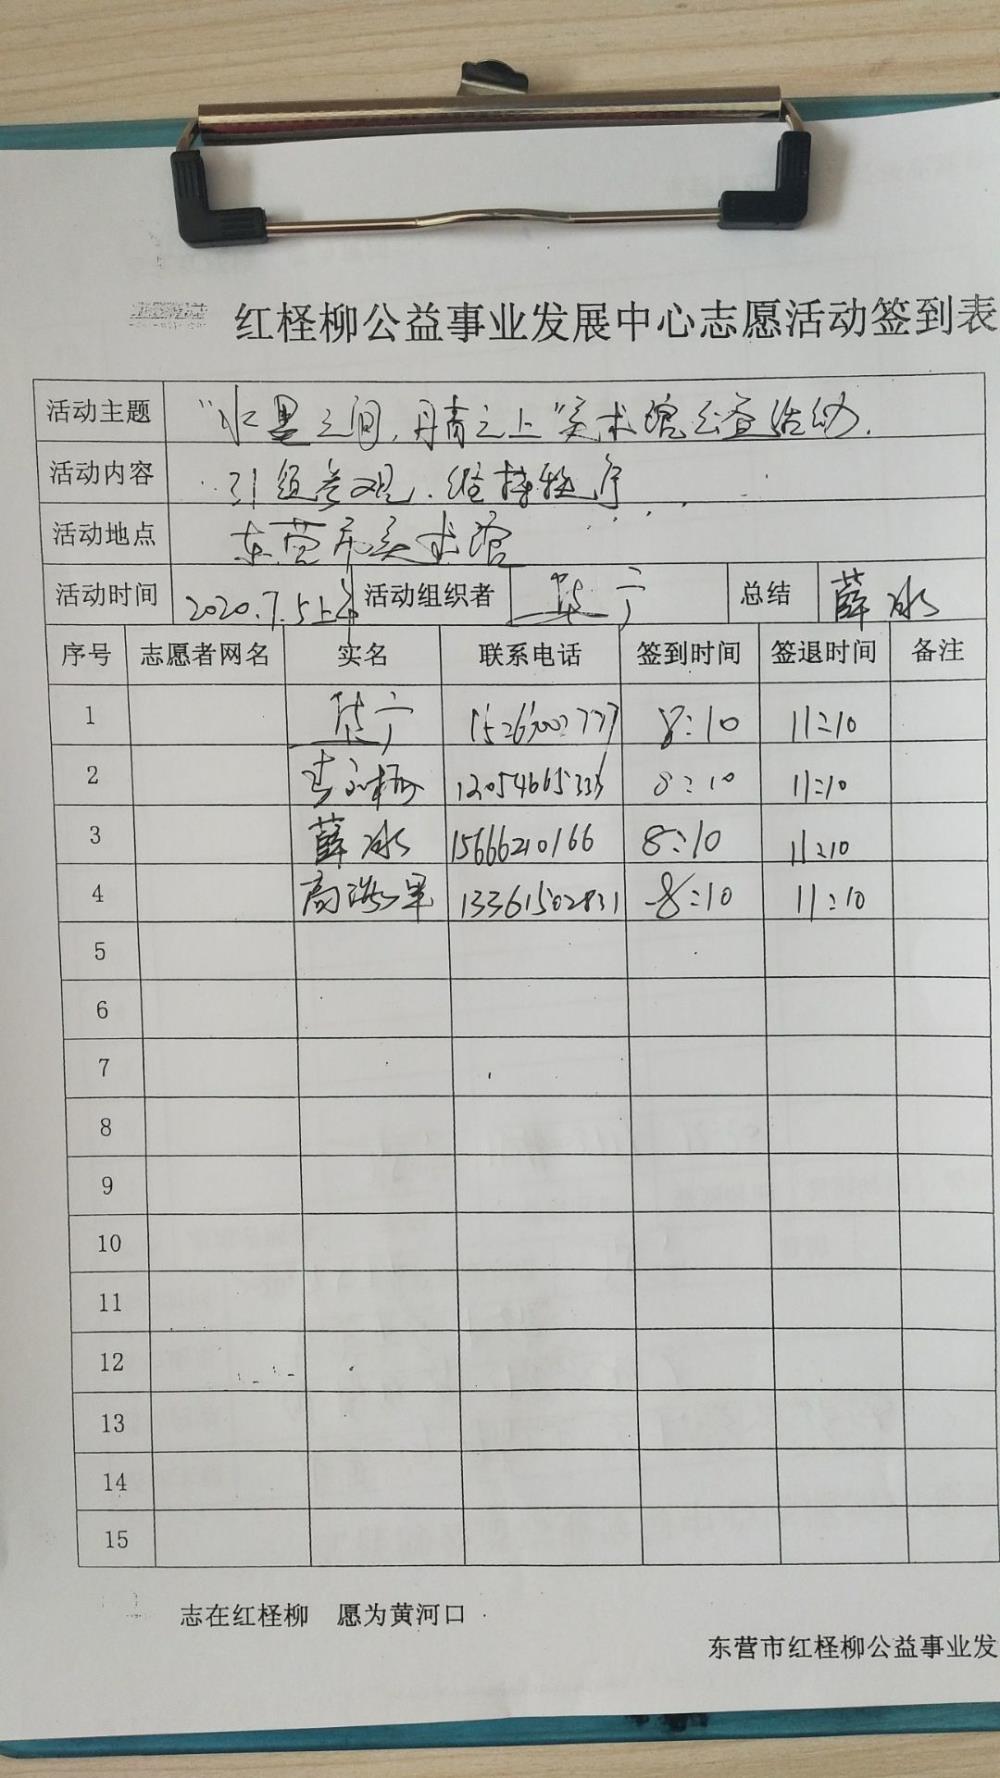 红柽柳公益事业发展中心志愿活动签到表
活动主题 "水墨之间,丹青之上"美术馆公益活动.
活动内容 引领参观、维持秩序
活动地点 东营市美术馆
活动时间 2020.7.5上午 活动组织者 总结 薛冰
序号 志愿者网名 实名 联系电话 签到时间 签退时间 备注
1 8:10 11:10
2 8:10 11:10
3 薛冰 15666210166 8:10 11:10
4 13361502831 8:10 11:10
5
6
7
8
9
10
11
12
13
14
15
志在红柽柳 愿为黄河口
东营市红柽柳公益事业发